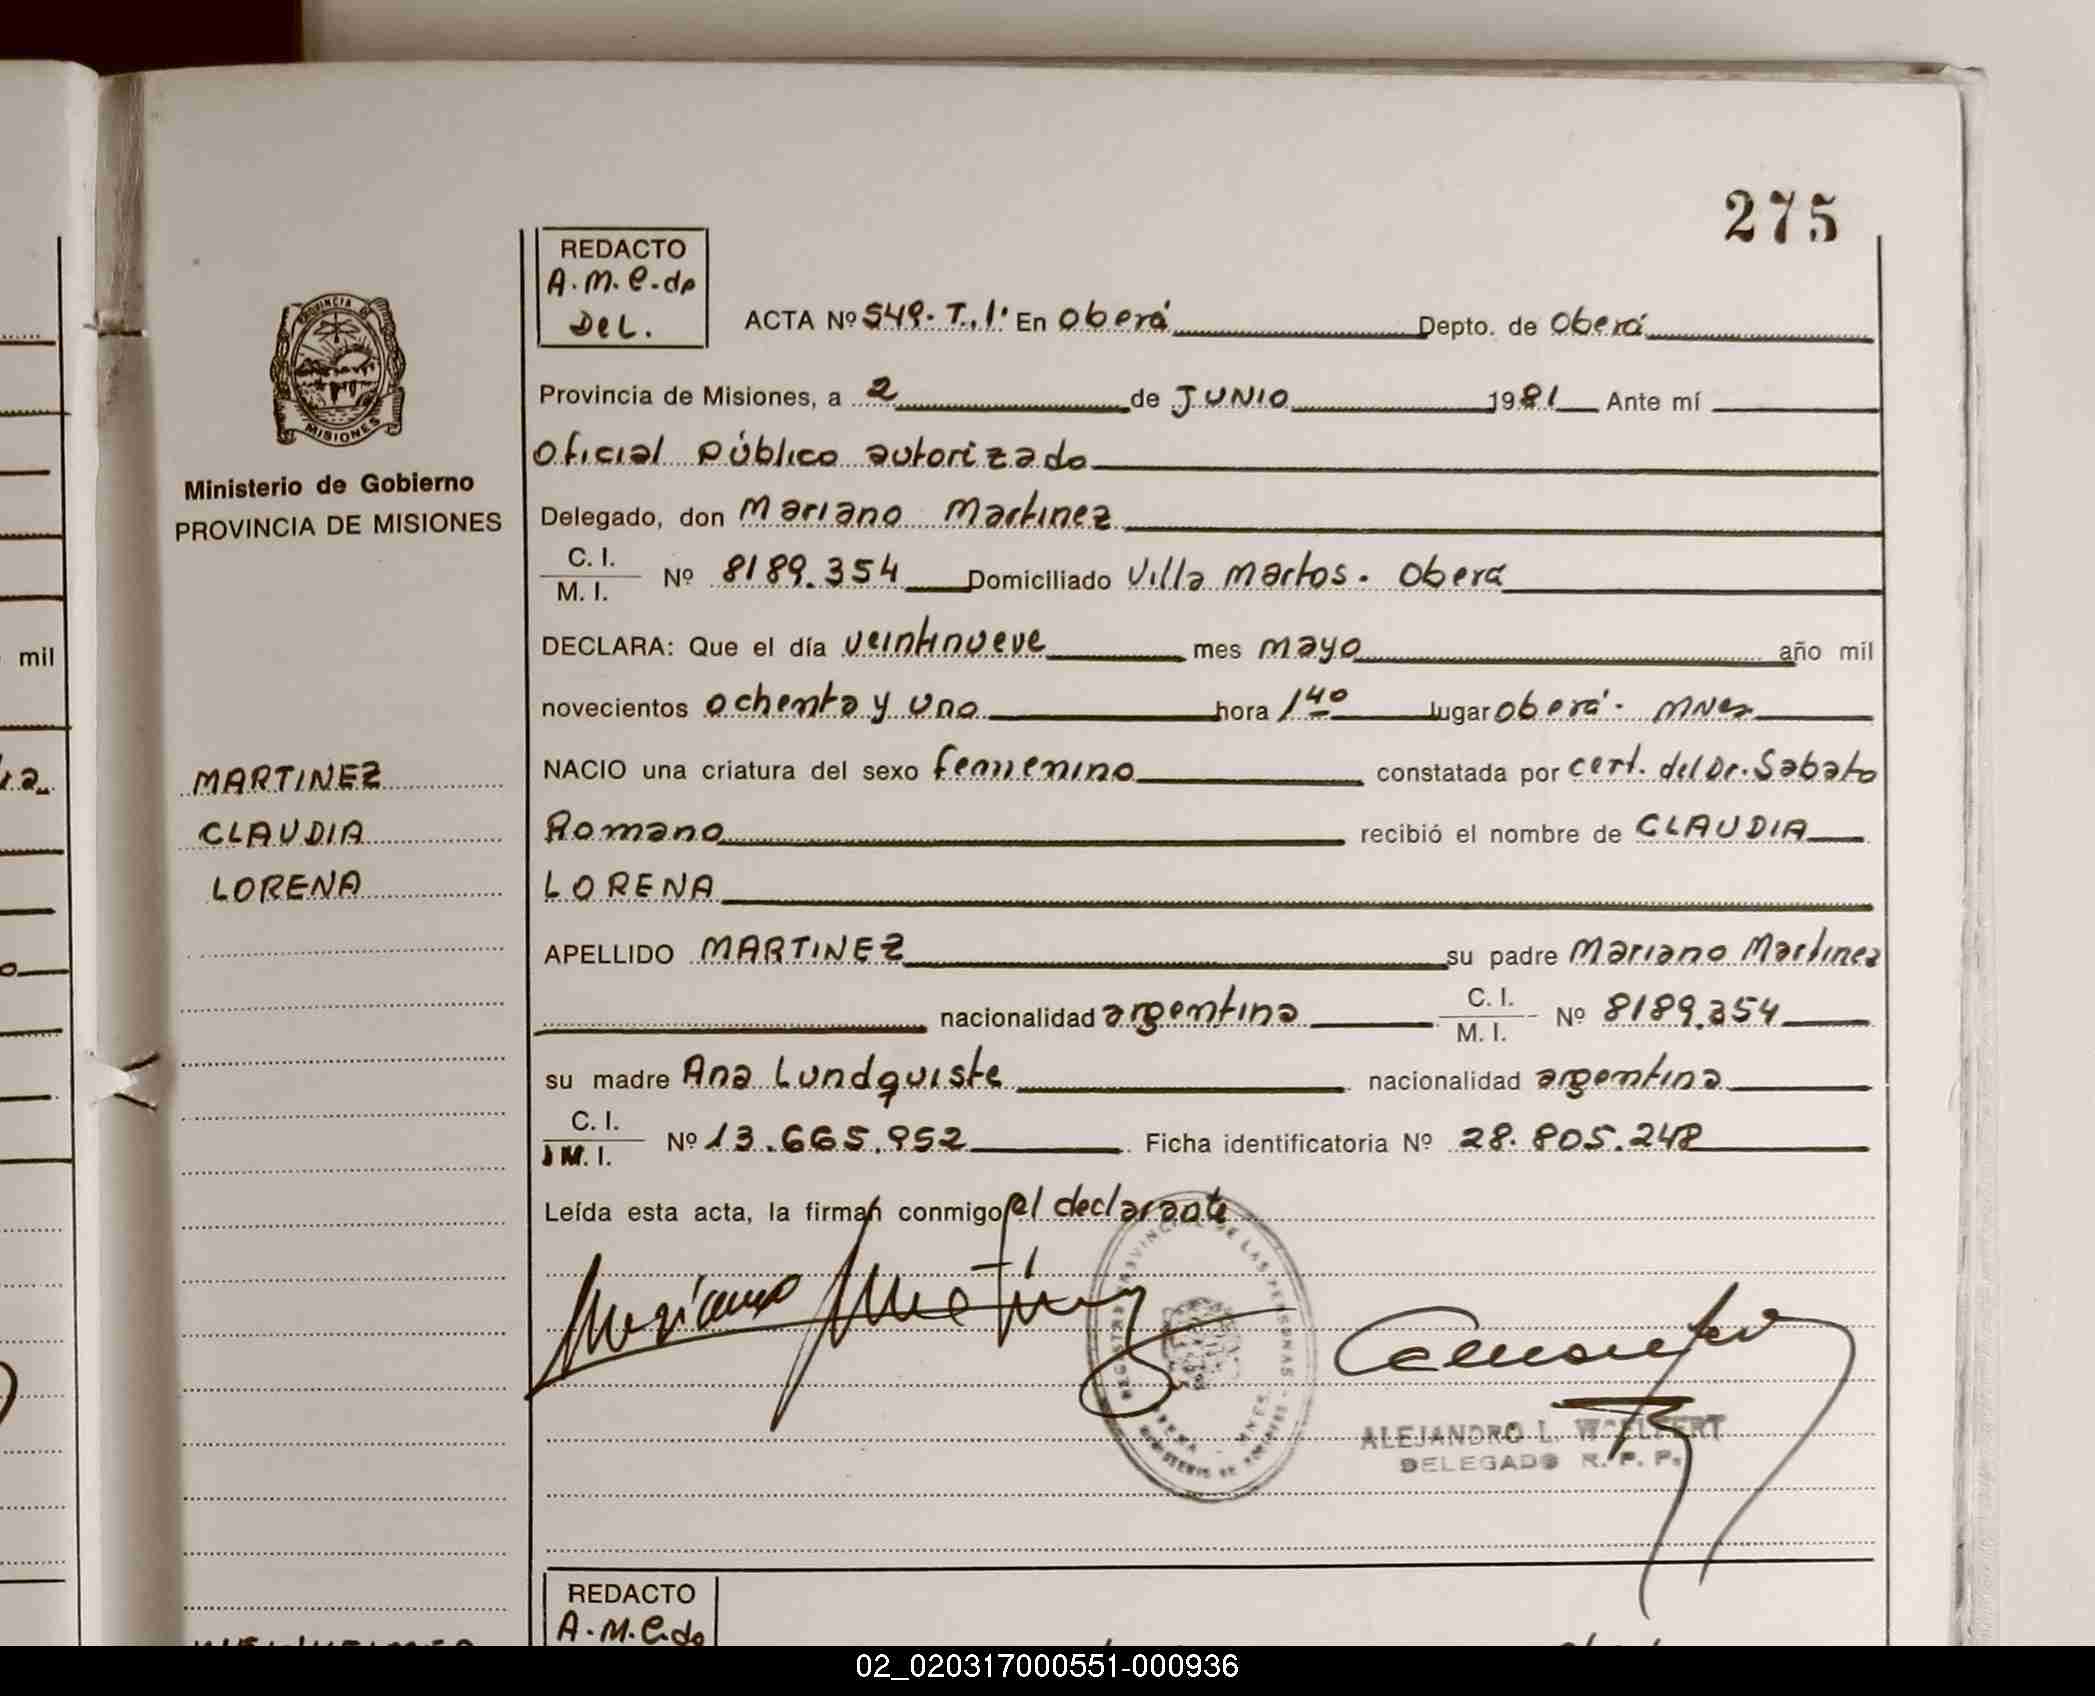 275
REDACTO
A.M.C.de
DEL.
ACTA Nº 549.T.1. En Oberá Depto. de Oberá
Provincia de Misiones, a 2 de JUNIO 1981 Ante mí
Oficial Público autorizado
Delegado, don Mariano Martinez
C. I.
M. I. Nº 8189.354 Domiciliado Villa Martos. Oberá
DECLARA: Que el día veintinueve mes mayo año mil
novecientos ochenta y uno hora 1 40 lugar Oberá. Mnes
NACIO una criatura del sexo femenino constatada por cert. del Dr. Sabato
Romano recibió el nombre de CLAUDIA
LORENA
APELLIDO MARTINEZ su padre Mariano Martinez
nacionalidad argentina C. I.
M. I. Nº 8189.354
su madre Ana Lundquiste nacionalidad argentina
C. I.
M. I. Nº 13.665.952 Ficha identificatoria Nº 28.805.248
Leída esta acta, la firman conmigo el declarante
Mariano Martinez
ALEJANDRO L. WOELFERT
DELEGADO R. P. P.
PROVINCIA
MISIONES
Ministerio de Gobierno
PROVINCIA DE MISIONES
MARTINEZ
CLAUDIA
LORENA
mil
REDACTO
A.M.C.de
02_020317000551-000936